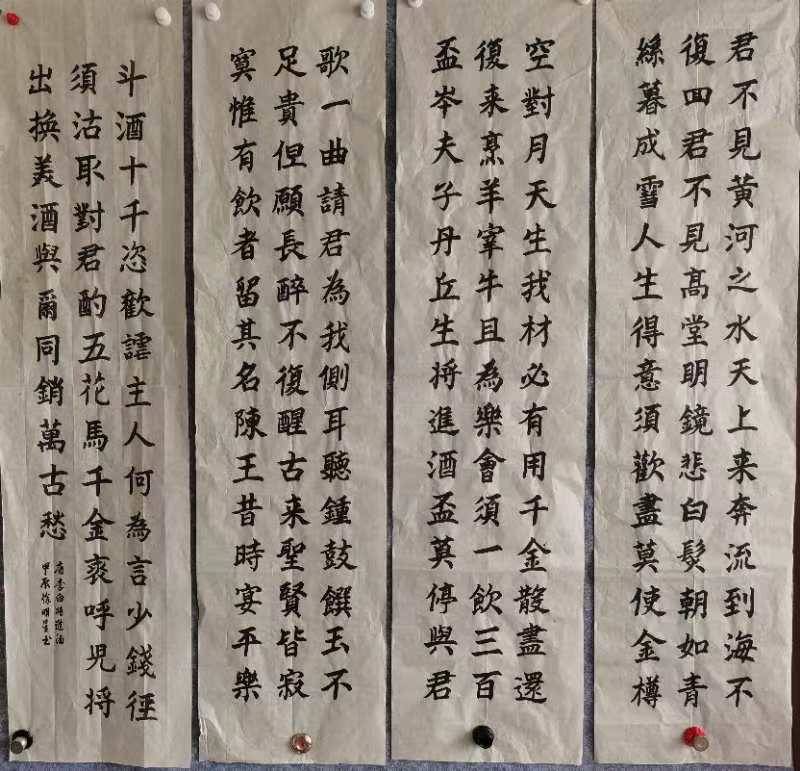 君不見黄河之水天上来奔流到海不
復回君不見髙堂明鏡悲白髮朝如青
絲暮成雪人生得意須歡盡莫使金樽
空對月天生我材必有用千金散盡還
復来烹羊宰牛且為樂會須一飲三百
盃岑夫子丹丘生将進酒盃莫停與君
歌一曲請君為我側耳聽鍾鼓饌玉不
足貴但願長醉不復醒古来聖賢皆寂
寞惟有飲者留其名陳王昔時宴平樂
斗酒十千恣歡謔主人何為言少錢徑
須沽取對君酌五花馬千金裘呼児将
出換美酒與爾同銷萬古愁
唐李白将進酒
甲辰徐明星书